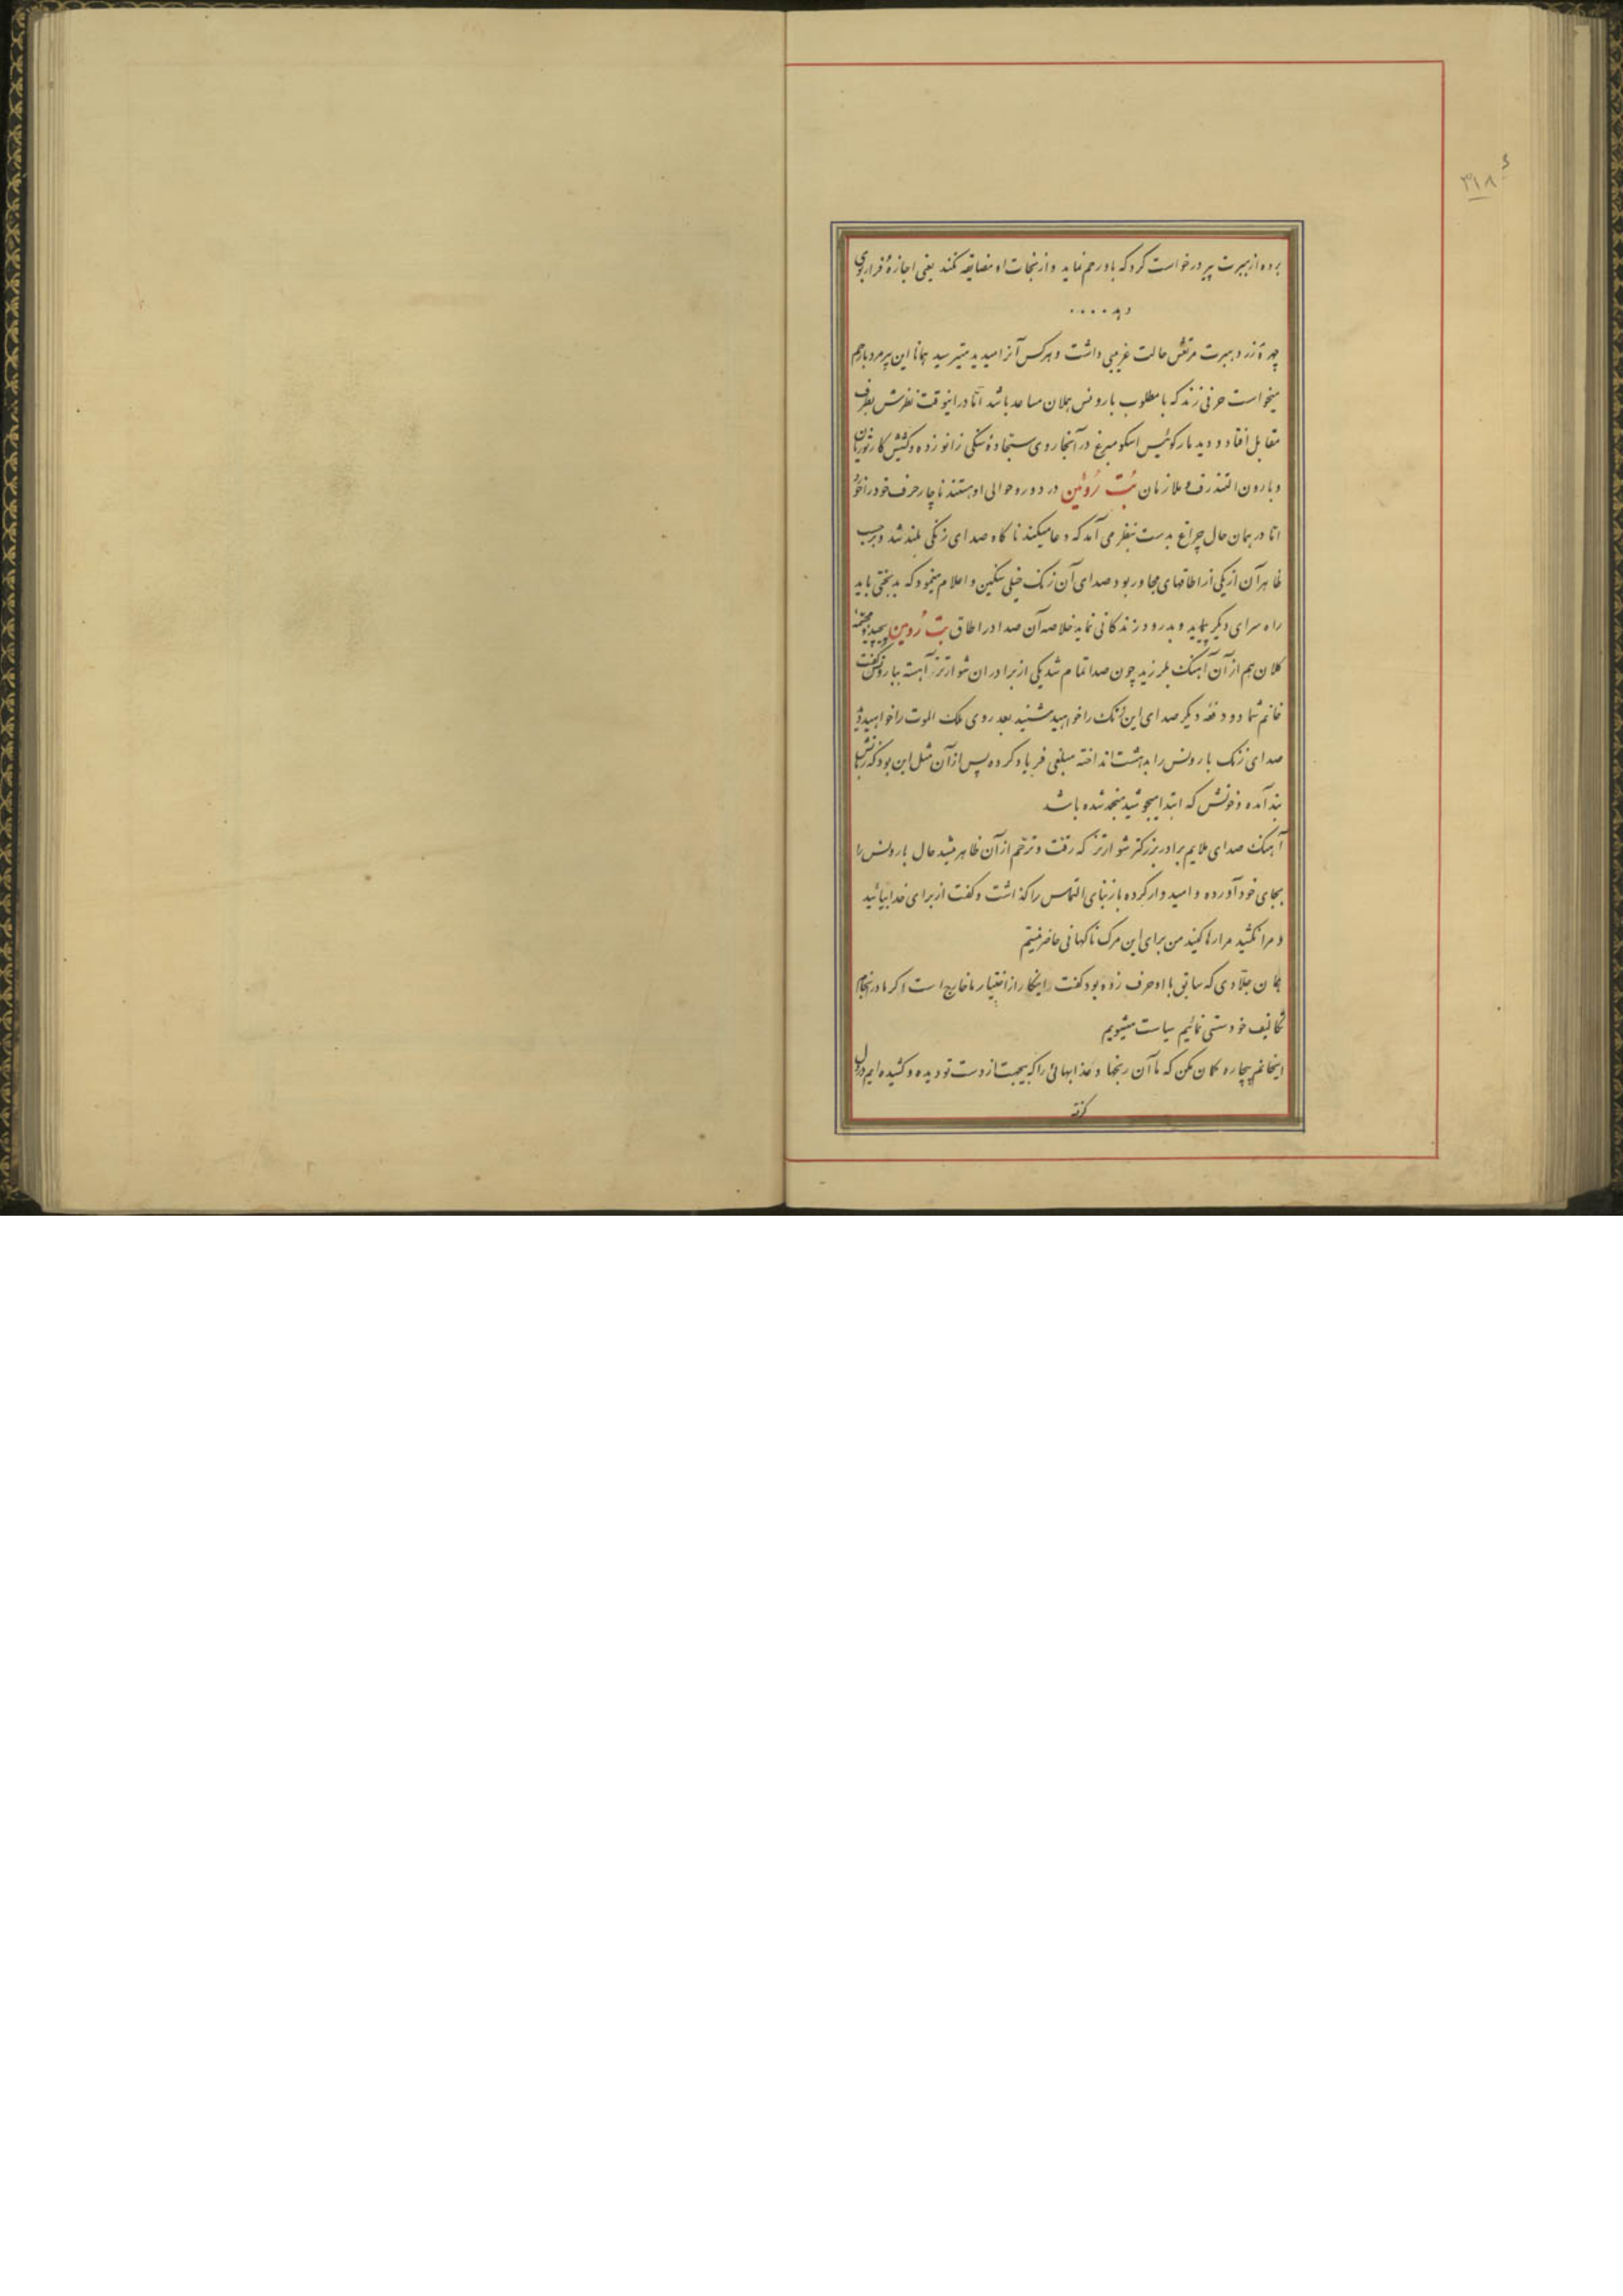 ۳۱۸
برده از هبرت پیر درخواست کرد که باو رحم نماید و از نجات او مضایقه نکند یعنی اجازهٔ فرار باوی
دهد ....
چهرهٔ زرد هبرت مرتعش حالت غریبی داشت و هرکس آنرا میدید میترسید همانا این پیرمرد بارحم
میخواست حرفی زند که با مطلوب بارونس هملان مساعد باشد امّا در اینوقت نظرش بطرف
مقابل افتاد و دید مارکوئیس اسکومبرغ در آنجا روی سجّادهٔ سنکی زانو زده و کشیش کارتوزیان
و بارون التندرف و ملازمان بُت رُوئین در دور و حوالی او هستند ناچار حرف خود را خورد
امّا در همان حال چراغ بدست بنظر می آمد که دعا میکند ناکاه صدای زنکی بلند شد و برحسب
ظاهر آن از یکی از اطاقهای مجاور بود صدای آن زنک خیلی سنکین و اعلام مینمود که بدبختی باید
راه سرای دیکر پیماید و بدرود زندکانی نماید خلاصه آن صدا در اطاق بت رُوین پیچید و مجسّمهٔ
کلان هم از آن آهنک بلرزید چون صدا تمام شد یکی از برادران شوارتز آهسته ببارونس کفت
خانم شما دو دفعهٔ دیکر صدای این زنک را خواهید شنید بعد روی ملک الموت را خواهید دید
صدای زنک بارونس را بدهشت انداخته مبلغی فریاد کرده پس از آن مثل این بود که زبانش
بند آمده و خونش که ابتدا میجوشید منجمد شده باشد
آهنک صدای ملایم برادر بزرکتر شوارتز که رقت و ترحّم از آن ظاهر میشد حال بارونس را
بجای خود آورده و امیدوار کرده باز بنای التماس را کذاشت و کفت از برای خدا بیائید
و مرا نکشید مرا رها کنید من برای این مرک ناکهانی حاضر نیستم
همان جلّادی که سابق با او حرف زده بود کفت اینکار از اختیار ما خارج است اکر ما در انجام
تکالیف خود سستی نمائیم سیاست میشویم
ایخانم بیچاره کمان مکن که ما آن رنجها و عذابهائی را که بیجهت از دست تو دیده و کشیده ایم در دل
کرفته